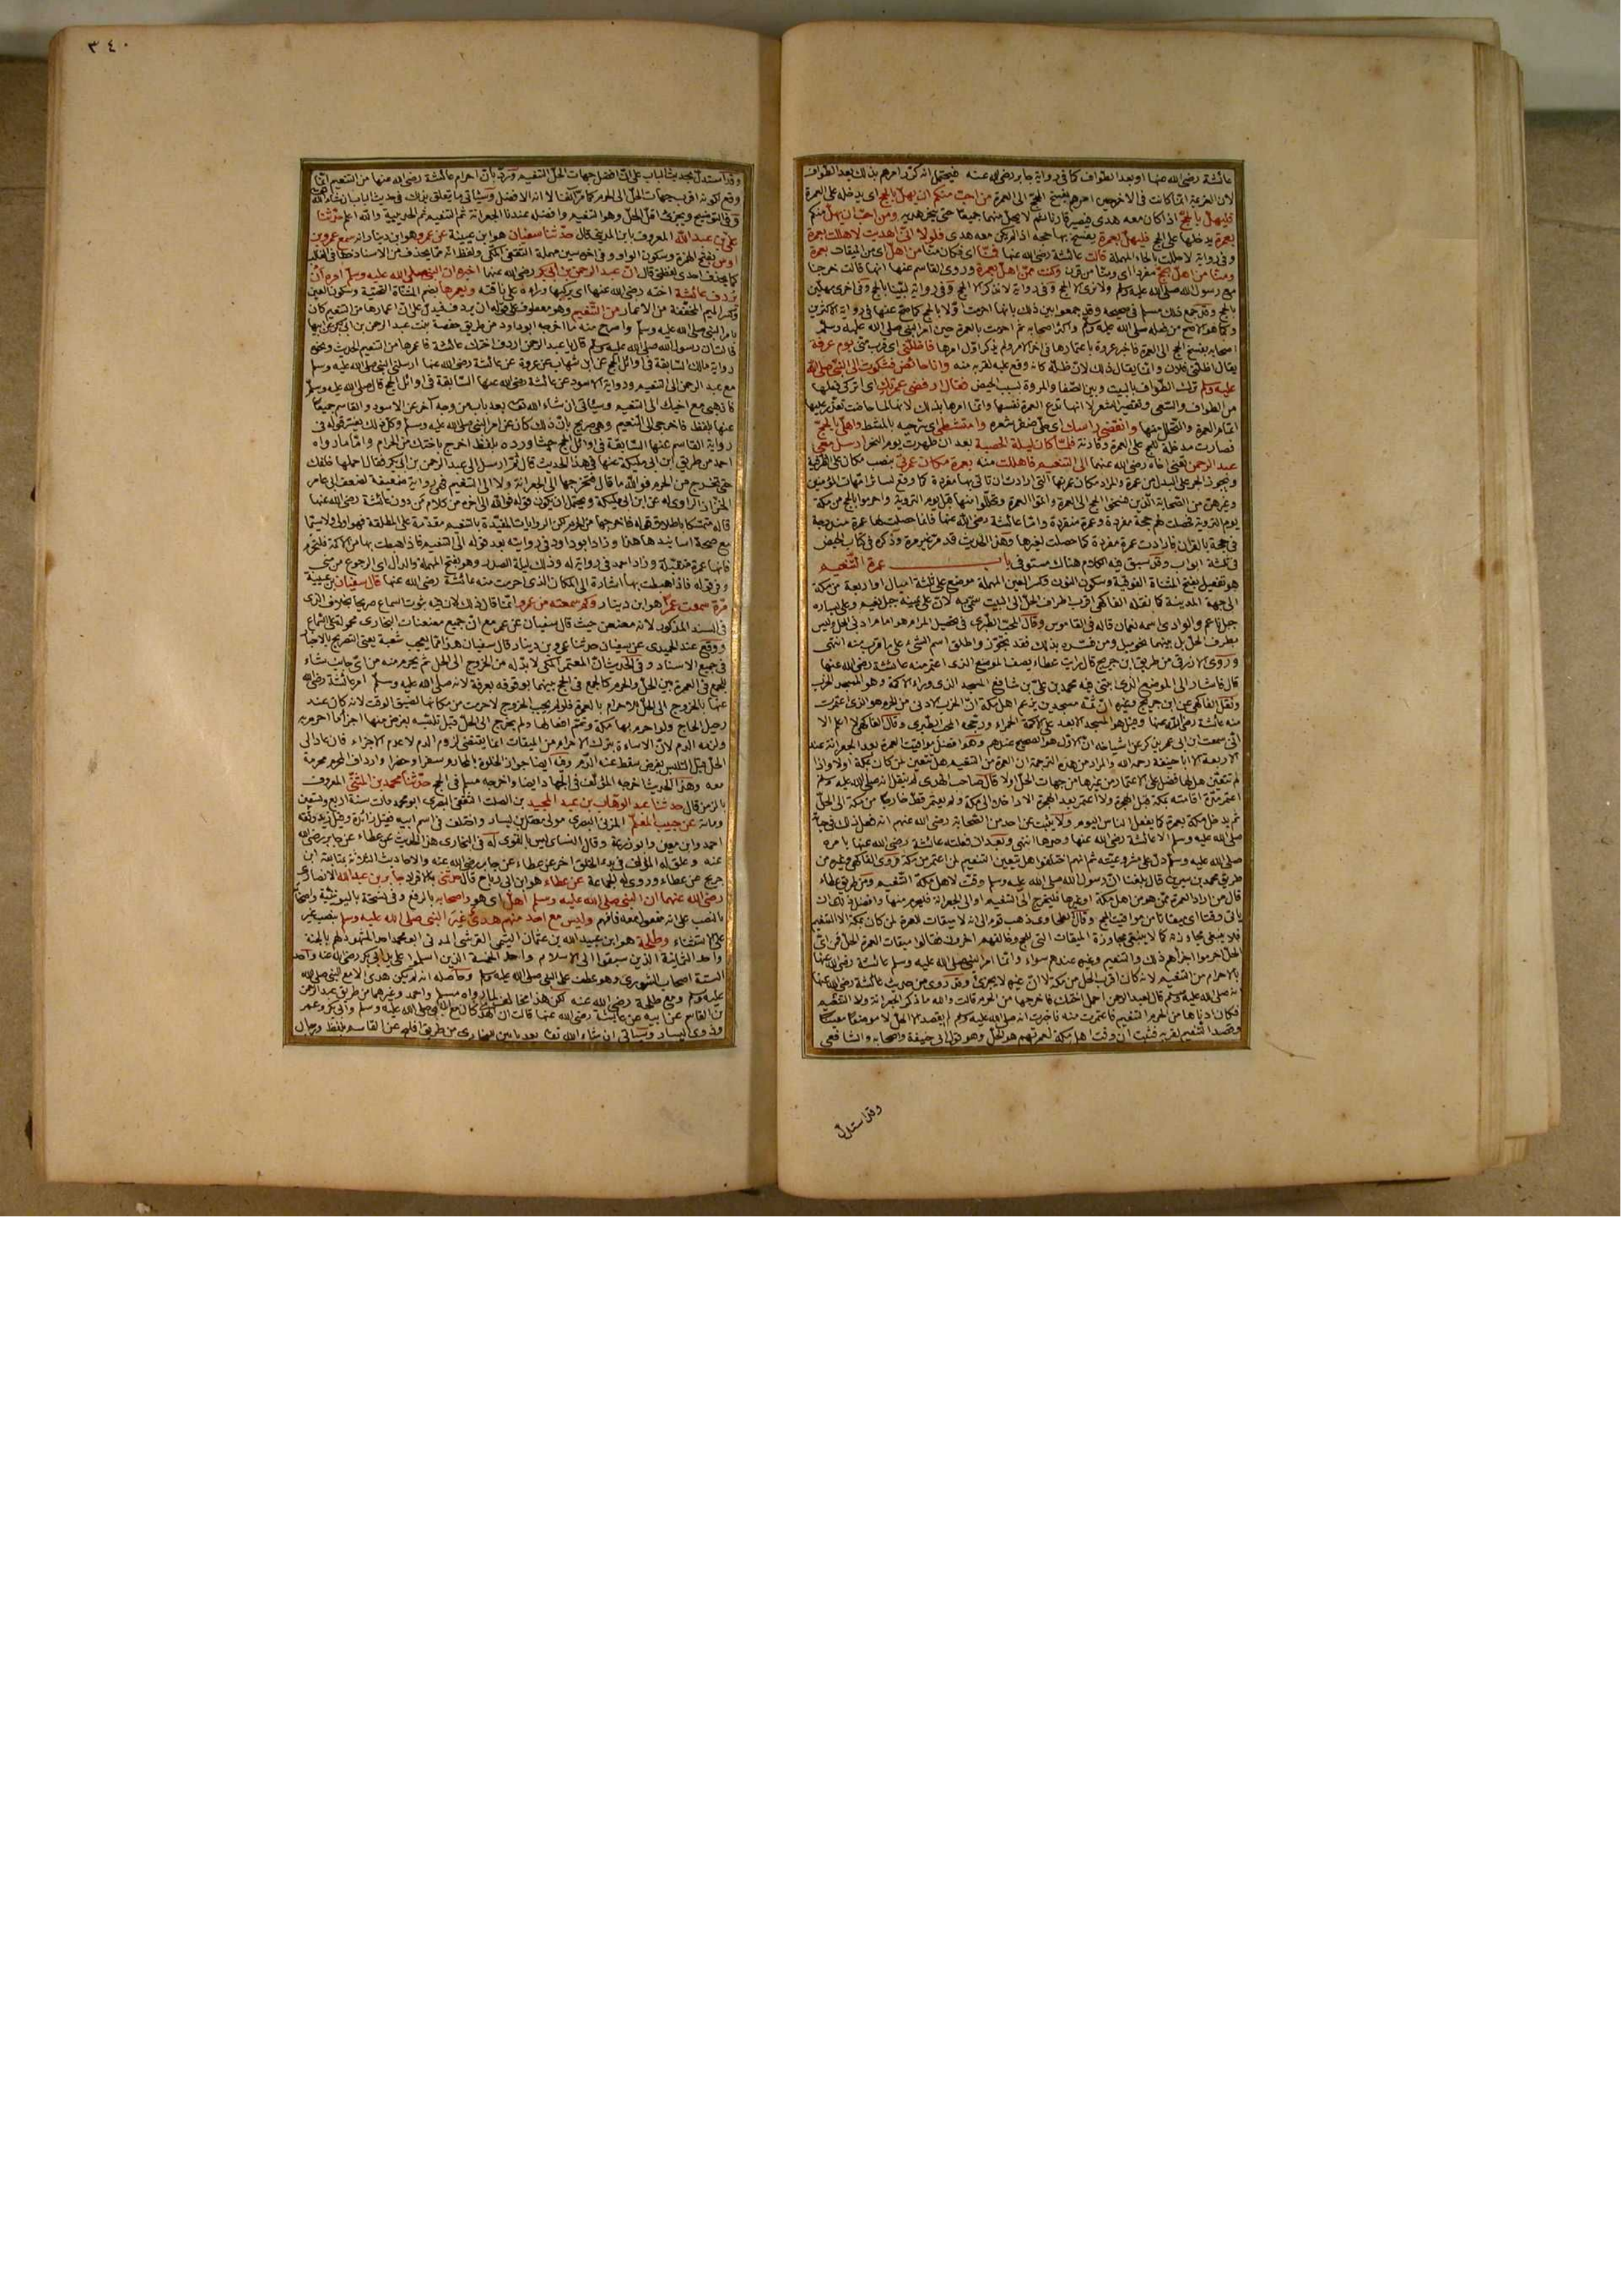 عائشة رضى الله عنها او بعد الطواف كما فى رواية جابر رضى الله عنه فيحتمل انه كرر امرهم بذلك بعد الطواف
لان العزيمة انما كانت فى الآخر حين امرهم بفسخ الحج الى العمرة من احب منكم ان يهل بالحج اى يدخله على العمرة
فليهل بالحج اذا كان معه هدى فيصير قارنا ثم لا يحل منهما جميعا حتى ينحر هديه ومن احب ان يهل منكم
بعمرة يدخلها على الحج فليهل بعمرة يفسخ بها حجه اذا لم يكن معه هدى فلولا انى اهديت لاهللت بعمرة
وفى رواية لاحللت بالحاء المهملة قالت عائشة رضى الله عنها فمنا اى فكان منا من اهل اى من الميقات بعمرة
ومنا من اهل بحج مفردا اى ومنا من قرن وكنت ممن اهل بعمرة وروى القاسم عنها انها قالت خرجنا
مع رسول الله صلى الله عليه وسلم ولا نرى الا الحج وفى رواية لا نذكر الا الحج وفى رواية لبينا بالحج وفى اخرى مهلين
بالحج وقد جمع ذلك مسلم فى صحيحه وقد جمعوا بين ذلك بانها احرمت اولا بالحج كما صح عنها فى رواية الاكثرين
وكما هو الاصح من فعله صلى الله عليه وسلم واكثر اصحابه ثم احرمت بالعمرة حين امر النبى صلى الله عليه وسلم
اصحابه بفسخ الحج الى العمرة فاخبر عروة باعتمارها فى آخر الامر ولم يذكر اول امرها فاظلنى اى قرب منى يوم عرفة
يقال اظلنى فلان وانما يقال ذلك لان ظله كانه وقع عليه لقربه منه وانا حائض فشكوت الى النبى صلى الله
عليه وسلم ترك الطواف بالبيت وبين الصفا والمروة بسبب الحيض فقال ارفضى عمرتك اى اتركى فعلها
من الطواف والسعى وتقصير الشعر لا انها تدع العمرة نفسها وانما امرها بذلك لانها لما حاضت تعذر عليها
اتمام العمرة والتحلل منها وانقضى راسك اى حلى ضفر شعره وامتشطى اى سرحيه بالمشط واهلى بالحج
فصارت مدخلة للحج على العمرة وقارنة فلما كان ليلة الحصبة بعد ان طهرت يوم النحر ارسل معى
عبد الرحمن تعنى اخاه رضى الله عنهما الى التنعيم فاهللت منه بعمرة مكان عمرتى بنصب مكان على الظرفية
ويجوز الجر على البدل من عمرة والمراد مكان عمرتها التى ارادت ان تاتى بها مفردة كما وقع لسائر امهات المؤمنين
وغيرهن من الصحابة الذين فسخوا الحج الى العمرة واتموا العمرة وتحللوا منها قبل يوم التروية واحرموا بالحج من مكة
يوم التروية فحصلت لهم حجة مفردة وعمرة منفردة واما عائشة رضى الله عنها فانما حصلت لها عمرة مندرجة
فى حجة بالقران فارادت عمرة مفردة كما حصلت لغيرها وهذا الحديث قد مر غير مرة وذكره فى كتاب الحيض
فى ثلثة ابواب وقد سبق فيه الكلام هناك مستوفى باب عمرة التنعيم
هو تفعيل بفتح المثناة الفوقية وسكون النون وكسر العين المهملة موضع على ثلثة اميال او اربعة من مكة
الى جهة المدينة كما نقله الفاكهى اقرب اطراف الحل الى البيت سمى به لان على يمينه جبل نعيم وعلى يساره
جبل ناعم والوادى اسمه نعمان قاله فى القاموس وقال المحب الطبرى فى تحصيل المرام هو امام ادنى الحل وليس
بطرف الحل بل بينهما نحو ميل ومن فسره بذلك فقد تجوز واطلق اسم الشىء على ما قرب منه انتهى
وروى الازرقى من طريق ابن جريج قال رايت عطاء يصف الموضع الذى اعتمر منه عائشة رضى الله عنها
قال فاشار الى الموضع الذى ابتنى فيه محمد بن على بن شافع المسجد الذى وراء الاكمة وهو المسجد الخرب
ونقل الفاكهى عن ابن جريج وغيره ان ثمة مسجدين يزعم اهل مكة ان الخرب الادنى من الحرم هو الذى اعتمرت
منه عائشة رضى الله عنها وقيل هو المسجد الابعد على الاكمة الحمراء ورجحه المحب الطبرى وقال الفاكهى لا اعلم الا
انى سمعت ابن ابى عمر يذكر عن اشياخه ان الاول هو الصحيح عندهم وهو افضل مواقيت العمرة بعد الجعرانة عند
الاربعة الا ابا حنيفة رحمه الله والمراد من هذه الترجمة ان العمرة من التنعيم هل تتعين لمن كان بمكة اولا واذا
لم تتعين هل لها فضل على الاعتمار من غيرها من جهات الحل اولا قال صاحب الهدى لم ينقل انه صلى الله عليه وسلم
اعتمر مدة اقامته بمكة قبل الهجرة ولا اعتمر بعد الهجرة الا داخلا الى مكة ولم يعتمر قط خارجا من مكة الى الحل
ثم يدخل مكة بعمرة كما يفعل الناس اليوم ولا يثبت عن احد من الصحابة رضى الله عنهم انه فعل ذلك فى حياته
صلى الله عليه وسلم الا عائشة رضى الله عنها وحدها انتهى وبعد ان فعلته عائشة رضى الله عنها بامره
صلى الله عليه وسلم دل على مشروعيته ثم انهم اختلفوا هل يتعين التنعيم لمن اعتمر من مكة فروى الفاكهى وغيره من
طريق محمد بن سيرين قال بلغنا ان رسول الله صلى الله عليه وسلم وقت لاهل مكة التنعيم ومن طريق عطاء
قال من اراد العمرة ممن هو من اهل مكة او غيرها فليخرج الى التنعيم او الى الجعرانة فليحرم منها وافضل ذلك ان
ياتى وقتا اى ميقاتا من مواقيت الحج وقال الطحاوى ذهب قوم الى انه لا ميقات للعمرة لمن كان بمكة الا التنعيم
فلا ينبغى مجاوزته كما لا ينبغى مجاوزة الميقات التى للحج وخالفهم آخرون فقالوا ميقات العمرة الحل فمن اى
الحل احرموا اجزاهم ذلك والتنعيم وغيره عندهم سواء وانما امر النبى صلى الله عليه وسلم عائشة رضى الله عنها
بالاحرام من التنعيم لانه كان اقرب الحل من مكة لا ان غيره لا يجزئ وقد روى من حديث عائشة رضى الله عنها
انه صلى الله عليه وسلم قال لعبد الرحمن احمل اختك فاخرجها من الحرم قالت والله ما ذكر الجعرانة ولا التنعيم
فكان ادناها من الحرم التنعيم فاعتمرت منه فاخبرت انه صلى الله عليه وسلم لم يقصد الا الحل لا موضعا معينا
وقصد التنعيم لقربه فثبت ان وقت اهل مكة لعمرتهم هو الحل وهو قول ابى حنيفة واصحابه والشافعى
وقد استدل
٣٤٠
وقد استدل بحديث الباب على ان افضل جهات الحل التنعيم ورد بان احرام عائشة رضى الله عنها من التنعيم انما
وقع لكونه اقرب جهات الحل الى الحرم كما مر آنفا لا انه الافضل وسياتى ما يتعلق بذلك فى حديث الباب ان شاء الله
وفى التوضيح ويجزئ اقل الحل وهو التنعيم وافضله عندنا الجعرانة ثم التنعيم ثم الحديبية والله اعلم حدثنا
على بن عبد الله المعروف بابن المدينى قال حدثنا سفيان هو ابن عيينة عن عمرو هو ابن دينار انه سمع عمرو بن
اوس بفتح الهمزة وسكون الواو وفى آخره سين مهملة الثقفى المكى ولفظ انه مما يحذف من الاسناد خطا فى الغالب
كما يحذف احدى لفظتى قال ان عبد الرحمن بن ابى بكر رضى الله عنهما اخبره ان النبى صلى الله عليه وسلم امره ان
يردف عائشة اخته رضى الله عنها اى يركبها وراءه على ناقته ويعمرها بضم المثناة التحتية وسكون العين
وكسر الميم المخففة من الاعمار من التنعيم وهو معطوف على قوله ان يردف فيدل على ان اعمارها من التنعيم كان
بامر النبى صلى الله عليه وسلم واصرح منه ما اخرجه ابو داود من طريق حفصة بنت عبد الرحمن بن ابى بكر عن ابيها
قالت ان رسول الله صلى الله عليه وسلم قال يا عبد الرحمن اردف اختك عائشة فاعمرها من التنعيم الحديث ونحوه
رواية مالك السابقة فى اوائل الحج عن ابن شهاب عن عروة عن عائشة رضى الله عنها ارسلنى النبى صلى الله عليه وسلم
مع عبد الرحمن الى التنعيم ورواية الاسود عن عائشة رضى الله عنها السابقة فى اوائل الحج قال صلى الله عليه وسلم
فاذهبى مع اخيك الى التنعيم وسياتى ان شاء الله تعالى بعد باب من وجه آخر عن الاسود والقاسم جميعا
عنها بلفظ فاخرجى الى التنعيم وهى صريح بان ذلك كان عن امر النبى صلى الله عليه وسلم وكل ذلك يفسر قوله فى
رواية القاسم عنها السابقة فى اوائل الحج حيث اورده بلفظ اخرج باختك من الحرام واما ما رواه
احمد من طريق ابن ابى مليكة عنها فى هذا الحديث قال ثم ارسل الى عبد الرحمن بن ابى بكر فقال احملها خلفك
حتى تخرج من الحرم فوالله ما قال فتخرجها الى الجعرانة ولا الى التنعيم فهى رواية ضعيفة لضعف ابى عامر
الخزاز الراوى له عن ابن ابى مليكة ويحتمل ان يكون قوله فوالله الى آخره من كلام من دون عائشة رضى الله عنها
قاله متمسكا باطلاق قوله فاخرجها من الحرم لكن الروايات المقيدة بالتنعيم مقدمة على المطلقة فهو اولى ولا سيما
مع صحة اسانيدها هذا وزاد ابو داود فى روايته بعد قوله الى التنعيم فاذا هبطت بها من الاكمة فلتحرم
فانها عمرة متقبلة وزاد احمد فى رواية له وذلك ليلة الصدر وهو بفتح المهملة والدال اى الرجوع من منى
وفى قوله فاذا هبطت بها اشارة الى المكان الذى احرمت منه عائشة رضى الله عنها قال سفيان بن عيينة
مرة سمعت عمرا هو ابن دينار وكم سمعته من عمرو انما قال ذلك لان فيه ثبوت السماع صريحا بخلاف الذى
فى السند المذكور لانه معنعن حيث قال سفيان عن عمرو مع ان جميع معنعنات البخارى محمولة على السماع
ووقع عند الحميدى عن سفيان حدثنا عمرو بن دينار قال سفيان هذا مما يعجب شعبة يعنى التصريح بالاخبار
فى جميع الاسناد وفى الحديث ان المعتمر المكى لا بد له من الخروج الى الحل ثم يحرم منه من اى جانب شاء
للجمع فى العمرة بين الحل والحرم كالجمع فى الحج بينهما بوقوفه بعرفة لانه صلى الله عليه وسلم امر عائشة رضى الله
عنها بالخروج الى الحل للاحرام بالعمرة فلو لم يجب الخروج لاحرمت من مكانها لضيق الوقت لانه كان عند
رحيل الحاج ولو احرم بها بمكة وتمم افعالها ولم يخرج الى الحل قبل تلبسه بفرض منها اجزاه ما احرم به
ولزمه الدم لان الاساءة بترك الاحرام من الميقات انما يقتضى لزوم الدم لا عدم الاجزاء فان عاد الى
الحل قبل التلبس بفرض سقط عنه الدم وفيه ايضا جواز الخلوة بالمحارم سفرا وحضرا وارداف المحرم محرمه
معه وهذا الحديث اخرجه المؤلف فى الجهاد ايضا واخرجه مسلم فى الحج حدثنا محمد بن المثنى المعروف
بالزمن قال حدثنا عبد الوهاب بن عبد المجيد بن الصلت الثقفى البصرى ابو محمد مات سنة اربع وتسعين
ومائة عن حبيب المعلم المزنى البصرى مولى معقل بن يسار واختلف فى اسم ابيه فقيل زائدة وقيل زيد وثقه
احمد وابن معين وابو زرعة وقال النسائى ليس بالقوى له فى البخارى هذا الحديث عن عطاء عن جابر رضى الله
عنه وعلق له المؤلف فى بدء الخلق آخر عن عطاء عن جابر رضى الله عنه والاحاديث الثلاثة بمتابعة ابن
جريج عن عطاء وروى له الجماعة عن عطاء هو ابن ابى رباح قال حدثنى بالافراد جابر بن عبد الله الانصارى
رضى الله عنهما ان النبى صلى الله عليه وسلم اهل اى هو واصحابه بالرفع وفى نسخة باليونينية واصحابه
بالنصب على انه مفعول معه فافهم وليس مع احد منهم هدى غير النبى صلى الله عليه وسلم بنصب غير
على الاستثناء وطلحة هو ابن عبيد الله بن عثمان التيمى القرشى المدنى ابو محمد احد المشهود لهم بالجنة
واحد الثمانية الذين سبقوا الى الاسلام واحد الخمسة الذين اسلموا على يد ابى بكر رضى الله عنه واحد
الستة اصحاب الشورى وهو عطف على النبى صلى الله عليه وسلم وحاصله انه لم يكن هدى الا مع النبى صلى الله
عليه وسلم ومع طلحة رضى الله عنه لكن هذا مخالف لما رواه مسلم واحمد وغيرهما من طريق عبد الرحمن
بن القاسم عن ابيه عن عائشة رضى الله عنها قالت ان الهدى كان مع النبى صلى الله عليه وسلم وابى بكر وعمر
وذوى اليسار وسياتى ان شاء الله تعالى بعد بابين للبخارى من طريق افلح عن القاسم بلفظ ورجال